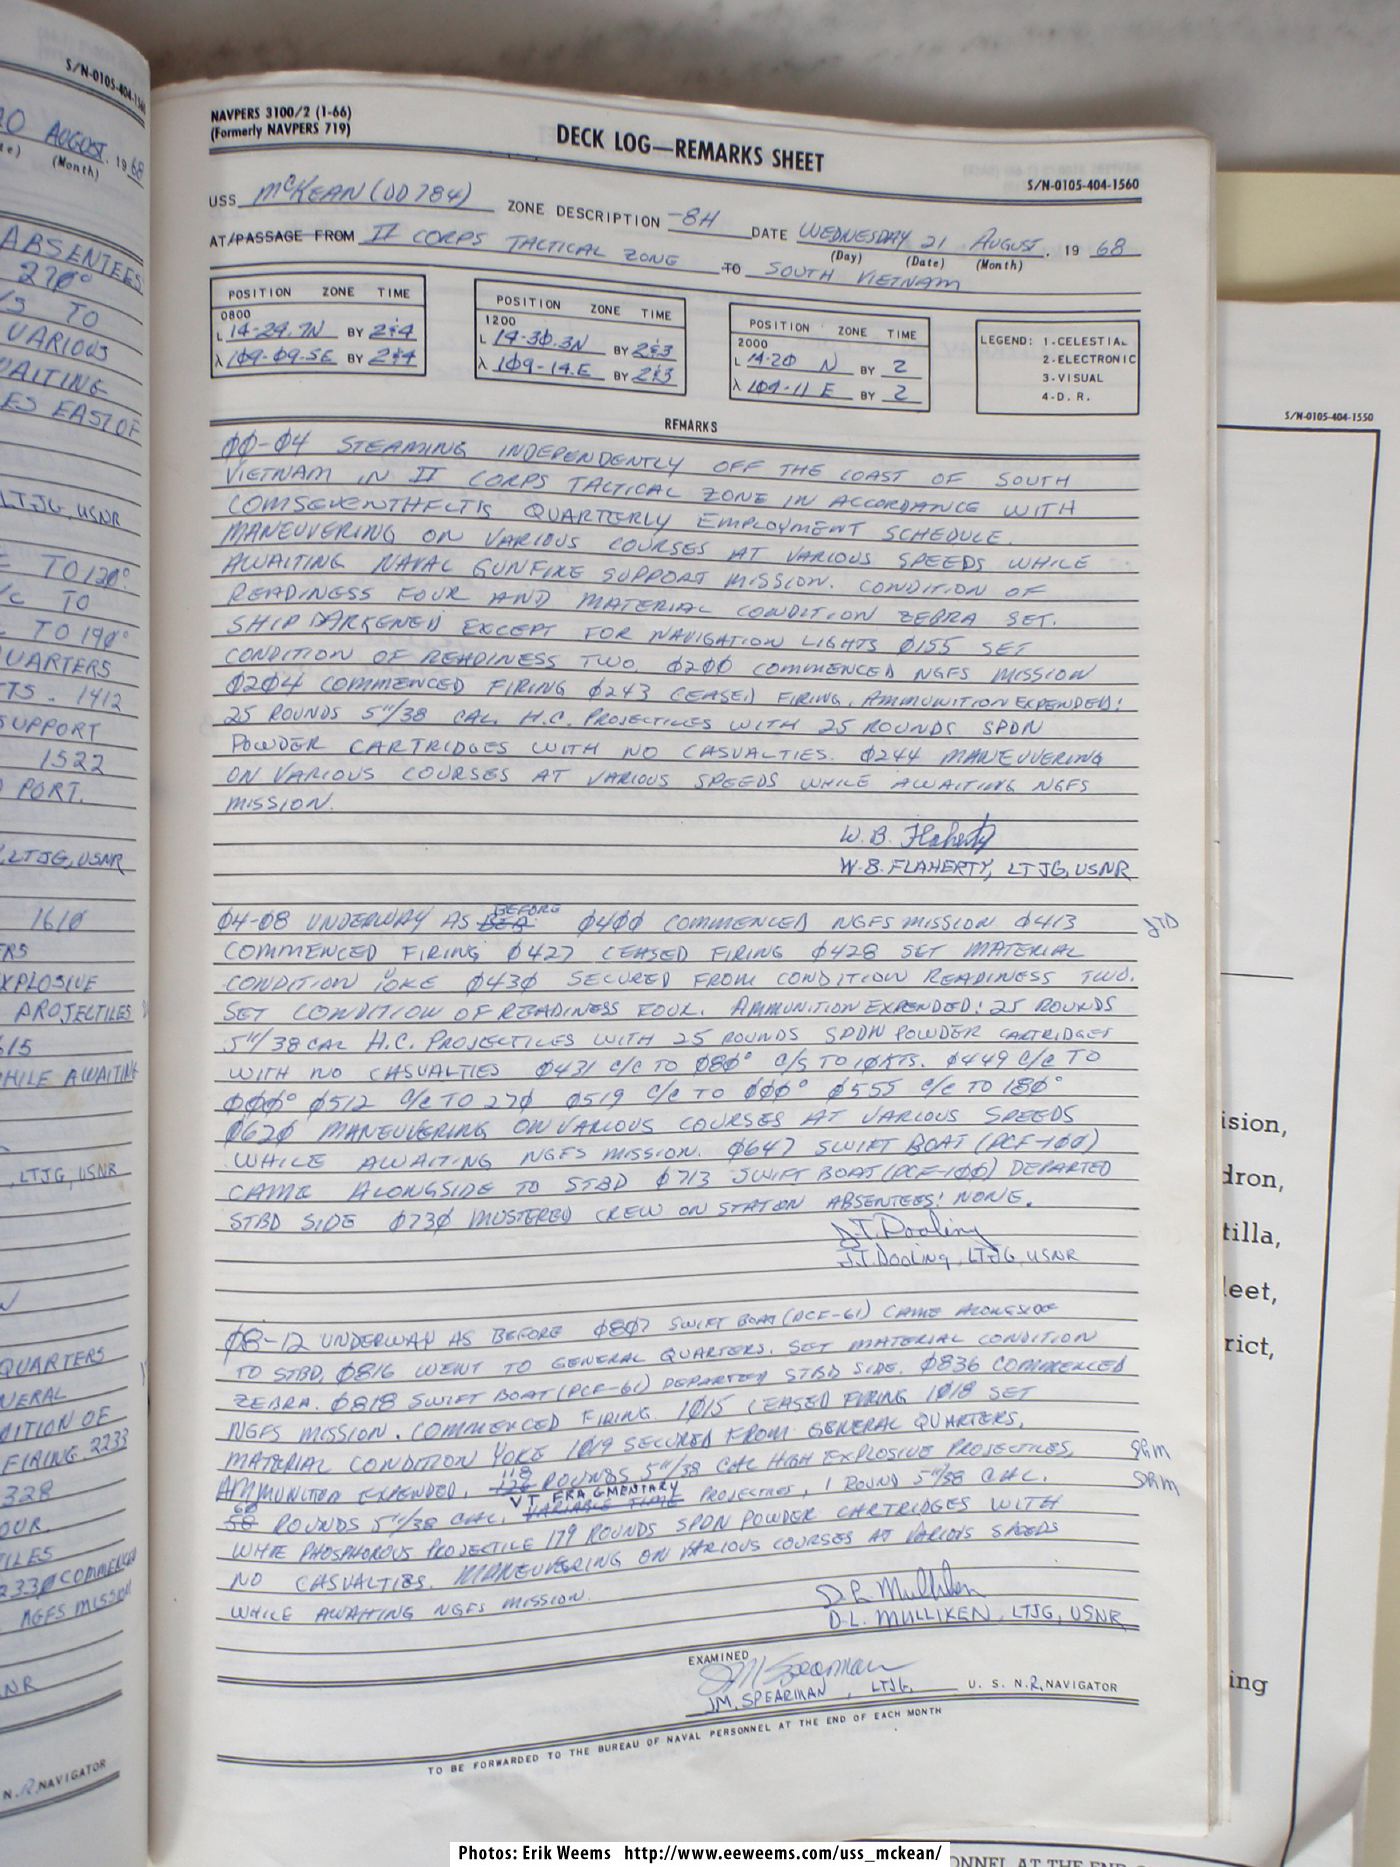 S/N-0105-404-1560
AUGUST, 1968
(Month)
ABSENTEES
270°
TO
VARIOUS
ES EAST OF
LTJG, USNR
TO 120°
TO
TO 190°
1412
1522
PORT.
LTJG, USNR
1610
PROJECTILES
WHILE AWAITING
, LTJG, USNR
QUARTERS
FIRING. 2233
2330 COMMENCED
NGFS MISSION
N. R. NAVIGATOR
NAVPERS 3100/2 (1-66)
(Formerly NAVPERS 719)
DECK LOG—REMARKS SHEET
S/N-0105-404-1560
USS McKEAN (DD 784) ZONE DESCRIPTION -8H DATE WEDNESDAY 21 AUGUST, 19 68
(Day) (Date) (Month)
AT/PASSAGE FROM II CORPS TACTICAL ZONE TO SOUTH VIETNAM
POSITION ZONE TIME
0800
L 14-29.7N BY 2&4
λ 109-09.5E BY 2&4
POSITION ZONE TIME
1200
L 14-30.3N BY 2&3
λ 109-14.E BY 2&3
POSITION ZONE TIME
2000
L 14-20 N BY 2
λ 109-11 E BY 2
LEGEND: 1-CELESTIAL
2-ELECTRONIC
3-VISUAL
4-D. R.
REMARKS
00-04 STEAMING INDEPENDENTLY OFF THE COAST OF SOUTH
VIETNAM IN II CORPS TACTICAL ZONE IN ACCORDANCE WITH
COMSEVENTHFLT'S QUARTERLY EMPLOYMENT SCHEDULE.
MANEUVERING ON VARIOUS COURSES AT VARIOUS SPEEDS WHILE
AWAITING NAVAL GUNFIRE SUPPORT MISSION. CONDITION OF
READINESS FOUR AND MATERIAL CONDITION ZEBRA SET.
SHIP DARKENED EXCEPT FOR NAVIGATION LIGHTS 0155 SET
CONDITION OF READINESS TWO. 0200 COMMENCED NGFS MISSION
0204 COMMENCED FIRING 0243 CEASED FIRING. AMMUNITION EXPENDED:
25 ROUNDS 5"/38 CAL. H.C. PROJECTILES WITH 25 ROUNDS SPDN
POWDER CARTRIDGES WITH NO CASUALTIES. 0244 MANEUVERING
ON VARIOUS COURSES AT VARIOUS SPEEDS WHILE AWAITING NGFS
MISSION.
W. B. Flaherty
W. B. FLAHERTY, LTJG, USNR
04-08 UNDERWAY AS BEFORE 0400 COMMENCED NGFS MISSION 0413 JTD
COMMENCED FIRING 0427 CEASED FIRING 0428 SET MATERIAL
CONDITION YOKE 0430 SECURED FROM CONDITION READINESS TWO.
SET CONDITION OF READINESS FOUR. AMMUNITION EXPENDED: 25 ROUNDS
5"/38 CAL H.C. PROJECTILES WITH 25 ROUNDS SPDN POWDER CARTRIDGES
WITH NO CASUALTIES 0431 C/C TO 080° C/S TO 10KTS. 0449 C/C TO
000° 0512 C/C TO 270 0519 C/C TO 000° 0555 C/C TO 180°
0620 MANEUVERING ON VARIOUS COURSES AT VARIOUS SPEEDS
WHILE AWAITING NGFS MISSION. 0647 SWIFT BOAT (PCF-100)
CAME ALONGSIDE TO STBD 0713 SWIFT BOAT (PCF-100) DEPARTED
STBD SIDE 0730 MUSTERED CREW ON STATION ABSENTEES: NONE.
J.T. Dooling
J.T. Dooling, LTJG, USNR
08-12 UNDERWAY AS BEFORE 0807 SWIFT BOAT (PCF-61) CAME ALONGSIDE
TO STBD, 0816 WENT TO GENERAL QUARTERS. SET MATERIAL CONDITION
ZEBRA. 0818 SWIFT BOAT (PCF-61) DEPARTED STBD SIDE. 0836 COMMENCED
NGFS MISSION. COMMENCED FIRING. 1015 CEASED FIRING 1018 SET
MATERIAL CONDITION YOKE 1019 SECURED FROM GENERAL QUARTERS.
AMMUNITION EXPENDED, 118 ROUNDS 5"/38 CAL HIGH EXPLOSIVE PROJECTILES, SRM
60 58 ROUNDS 5"/38 CAL. VT FRAGMENTARY VARIABLE TIME PROJECTILES, 1 ROUND 5"/38 CAL. SRM
WHITE PHOSPHOROUS PROJECTILE 179 ROUNDS SPDN POWDER CARTRIDGES WITH
NO CASUALTIES. MANEUVERING ON VARIOUS COURSES AT VARIOUS SPEEDS
WHILE AWAITING NGFS MISSION.
D. L. Mulliken
D. L. MULLIKEN, LTJG, USNR
EXAMINED
JM Spearman
JM. SPEARMAN, LTJG. U. S. N.R. NAVIGATOR
TO BE FORWARDED TO THE BUREAU OF NAVAL PERSONNEL AT THE END OF EACH MONTH
S/N-0105-404-1550
ision,
dron,
tilla,
leet,
rict,
ing
Photos: Erik Weems http://www.eeweems.com/uss_mckean/